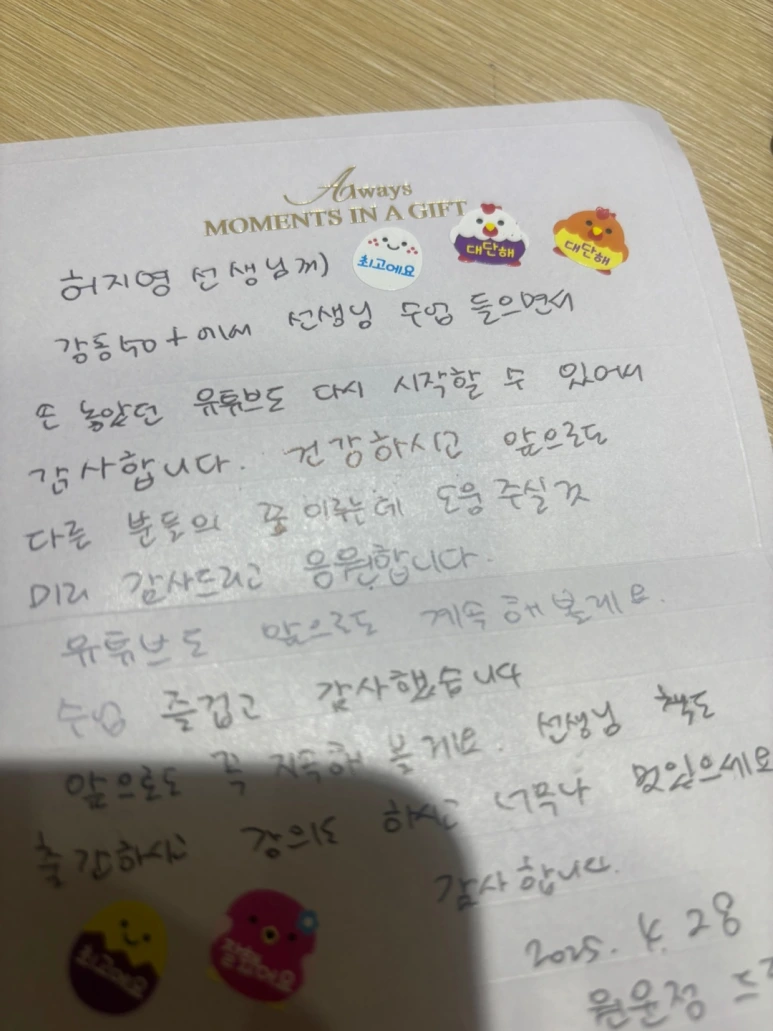 Always
MOMENTS IN A GIFT
최고에요
대단해
대단해
허지영 선생님께)
강동50+에서 선생님 수업 들으면서
손 놓았던 유튜브도 다시 시작할 수 있어서
감사합니다. 건강하시고 앞으로도
다른 분들의 꿈 이루는데 도움 주실 것
미리 감사드리고 응원합니다.
유튜브도 앞으로도 계속 해 볼게요.
수업 즐겁고 감사했습니다
앞으로도 꼭 지속해 볼게요. 선생님 책도
출간하시고 강의도 하시고 너무나 멋있으세요
감사합니다.
최고에요
잘했어요
2025. 4. 28
원윤정